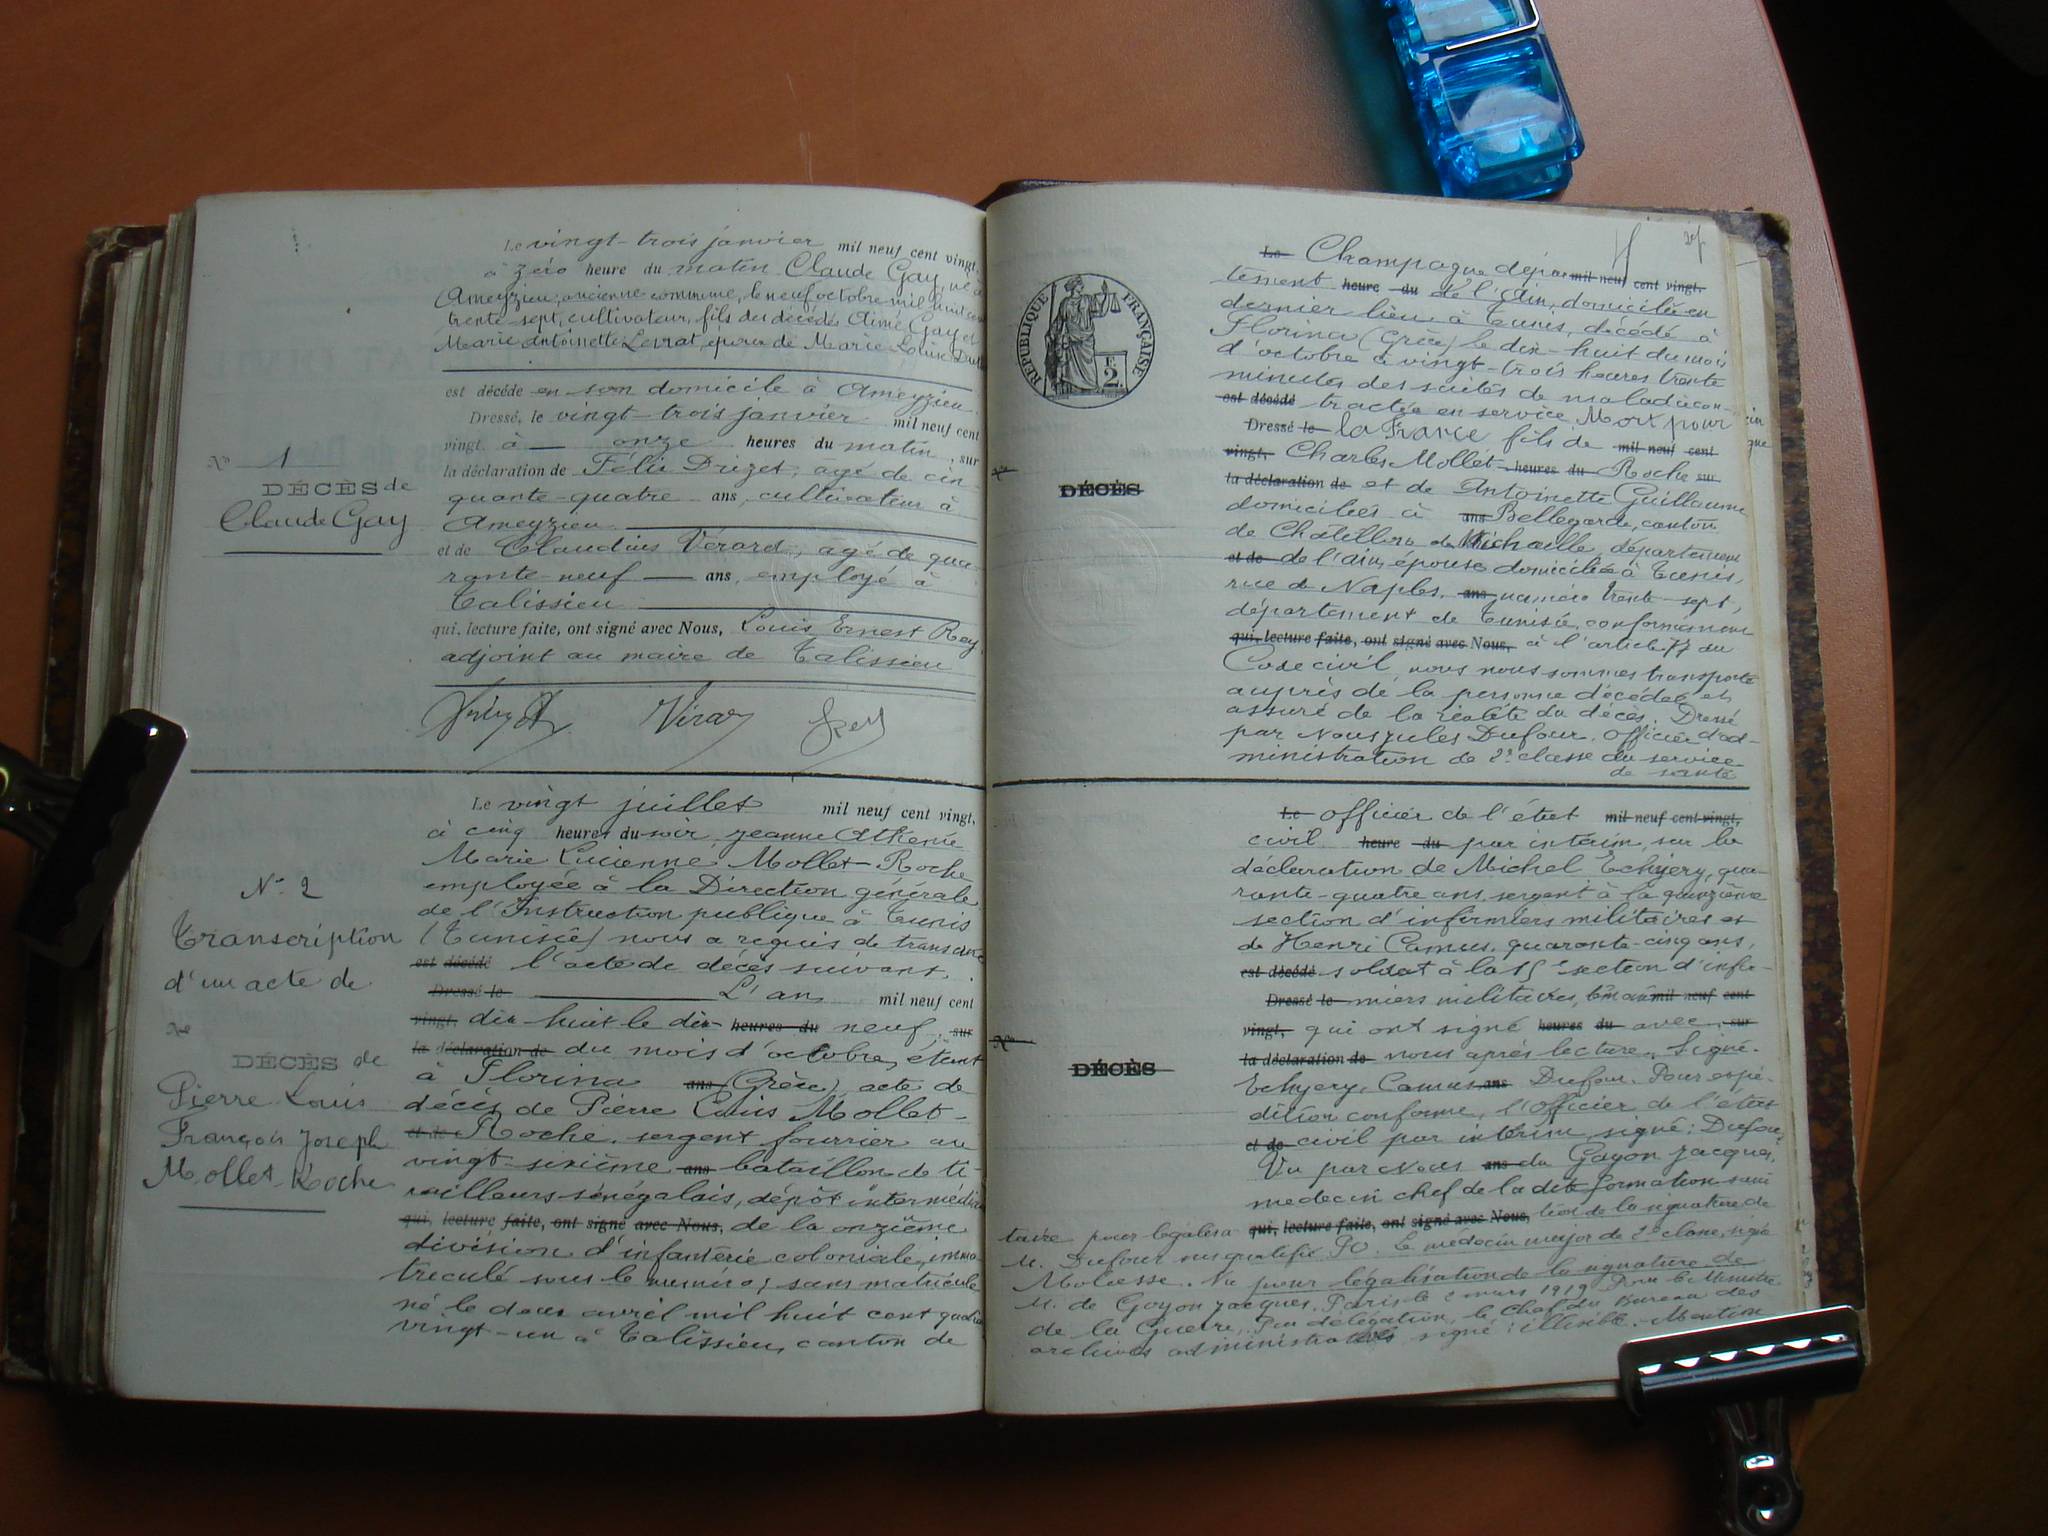 Le vingt-trois janvier mil neuf cent vingt,
à zéro heure du matin Claude Gay, né à
Ameyzieu, ancienne commune, le neuf octobre mil huit cent
trente-sept, cultivateur, fils des décédés Aimé Gay et
Marie Antoinette Levrat, époux de Marie Louise
est décédé en son domicile à Ameyzieu.
Dressé, le vingt-trois janvier mil neuf cent
vingt à — onze heures du matin, sur
la déclaration de Félix Drizet, agé de cin-
quante-quatre ans, cultivateur à
Ameyzieu
et de Claudius Vérard, agé de qua-
rante-neuf — ans, employé à
Talissieu
qui, lecture faite, ont signé avec Nous, Louis Ernest Rey,
adjoint au maire de Talissieu
No 1
DÉCÈS de
Claude Gay
Le vingt juillet mil neuf cent vingt,
à cinq heures du soir, Jeanne
Marie Lucienne Mollet-Roche
employée à la Direction générale
de l'Instruction publique à Tunis
(Tunisie) nous a requis de transcrire
est décédé l'acte de décès suivant.
Dressé le L'an mil neuf cent
vingt, dix-huit le dix- heures du neuf, sur
la déclaration de du mois d'octobre, étant
à Florina ans (Grèce) acte de
décès de Pierre Louis Mollet-
et de Roche, sergent fourrier au
vingt-sixième ans bataillon de ti-
railleurs sénégalais, dépôt intermédiaire
qui, lecture faite, ont signé avec Nous, de la onzième
division d'infanterie coloniale, imma-
triculé sous le numéro; sans matricule
né le deux avril mil huit cent quatre
vingt-un à Talissieu, canton de
No 2
Transcription
d'un acte de
No
DÉCÈS de
Pierre Louis
François Joseph
Mollet-Roche
Le Champagne dépar mil neuf cent vingt,
tement heure du de l'Ain, domicilié en
dernier lieu à Tunis, décédé à
Florina (Grèce) le dix-huit du mois
d'octobre à vingt-trois heures trente
minutes des suites de maladie con-
est décédé tractée en service Mort pour
Dressé le la France fils de mil neuf cent
vingt, Charles Mollet- heures du Roche sur
la déclaration de et de Antoinette Guillaume
domiciliés à ans Bellegarde, canton
de Chatillon de Michaille, département
et de de l'ain, épouse domiciliée à Tunis,
rue de Naples, ans numéro trente-sept,
département de Tunisie, conformément
qui, lecture faite, ont signé avec Nous, à l'article 77 du
Code civil, nous nous sommes transporté
auprès de la personne décédée et
assuré de la réalité du décès. Dressé
par Nous Jules Dufour, officier d'ad-
ministration de 2e classe du service
de santé
RÉPUBLIQUE FRANÇAISE
E
2.
No
DÉCÈS
Le officier de l'état mil neuf cent vingt,
civil heure du par intérim, sur la
déclaration de Michel Echyery, qua-
rante-quatre ans, sergent à la quinzième
section d'infirmiers militaires et
de Henri Camus, quarante-cinq ans,
est décédé soldat à la 15e section d'infir-
Dressé le miers militaires, témoins mil neuf cent
vingt, qui ont signé heures du avec, sur
la déclaration de nous après lecture. Signé.
Echyery, Camus ans Dufour. Pour expé-
dition conforme, l'officier de l'état
et de civil par intérim, signé: Dufour
Vu par Nous ans du Goyon Jacques,
medecin chef de la dite formation sani
taire pour légalisa qui, lecture faite, ont signé avec Nous, tion de la signature de
M. Dufour susqualifié PO. Le medecin major de 2e classe, signé
Vu pour légalisation de la signature de
M. de Goyon Jacques, Paris le 2 mars 1919 Pour le Ministre
de la Guerre. Par délégation, le Chef du Bureau des
archives administratives signé: illisible. Mention
No
DÉCÈS